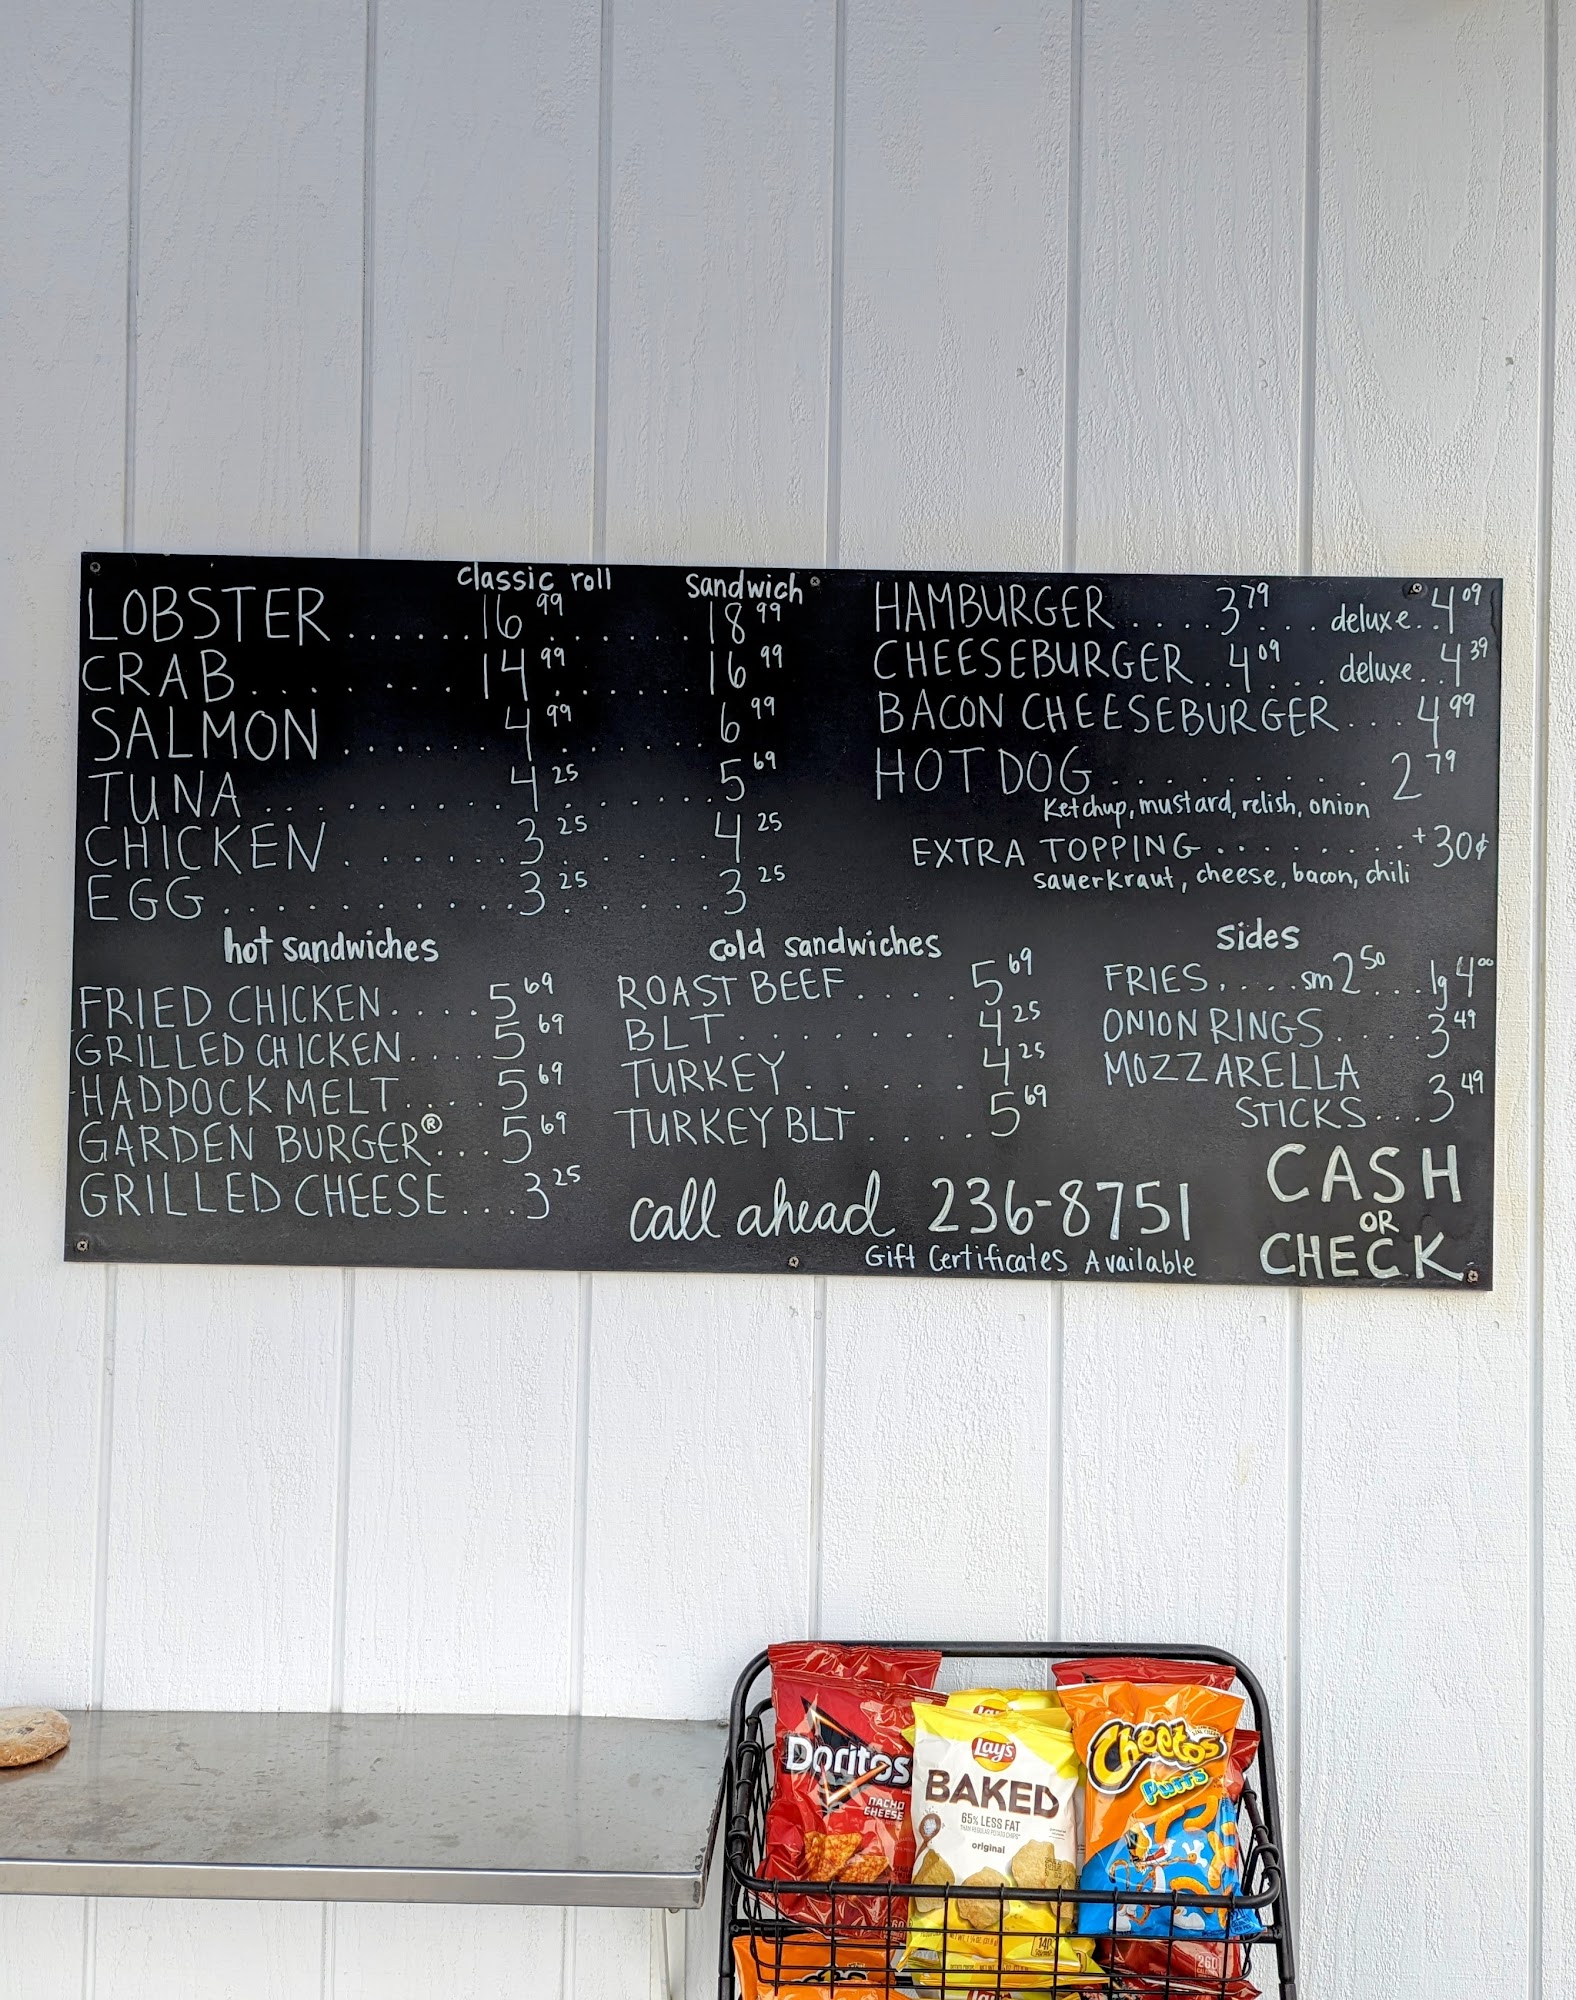 classic roll sandwich
LOBSTER......16 99.......18 99
CRAB........14 99.......16 99
SALMON.......4 99.......6 99
TUNA..........4 25.......5 69
CHICKEN......3 25.......4 25
EGG..........3 25.......3 25
HAMBURGER....3 79... deluxe..4 09
CHEESEBURGER..4 09... deluxe..4 39
BACON CHEESEBURGER...4 99
HOT DOG..........2 79
Ketchup, mustard, relish, onion
EXTRA TOPPING........+30¢
sauerkraut, cheese, bacon, chili
hot sandwiches
FRIED CHICKEN....5 69
GRILLED CHICKEN....5 69
HADDOCK MELT....5 69
GARDEN BURGER®...5 69
GRILLED CHEESE...3 25
cold sandwiches
ROAST BEEF....5 69
BLT........4 25
TURKEY......4 25
TURKEY BLT....5 69
sides
FRIES....sm 2 50...lg 4 00
ONION RINGS....3 49
MOZZARELLA
STICKS...3 49
call ahead 236-8751
Gift Certificates Available
CASH
OR
CHECK
Doritos
NACHO
CHEESE
Lay's
Lay's
BAKED
65% LESS FAT
original
Cheetos
Puffs
260
140
260
Lay's